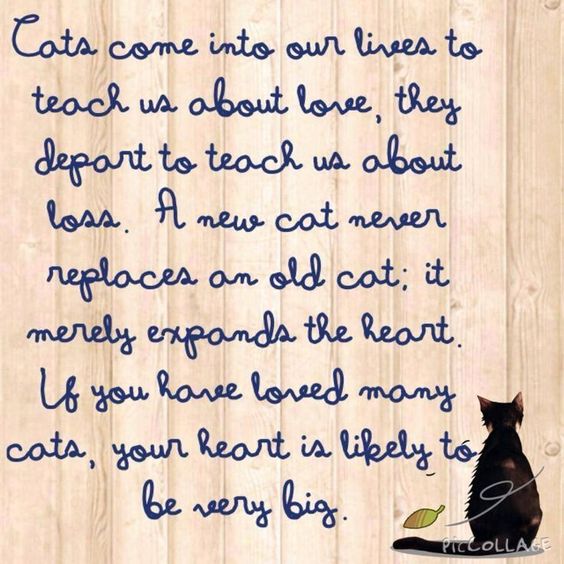 Cats come into our lives to
teach us about love, they
depart to teach us about
loss. A new cat never
replaces an old cat; it
merely expands the heart.
If you have loved many
cats, your heart is likely to
be very big.
PiCCOLLAGE